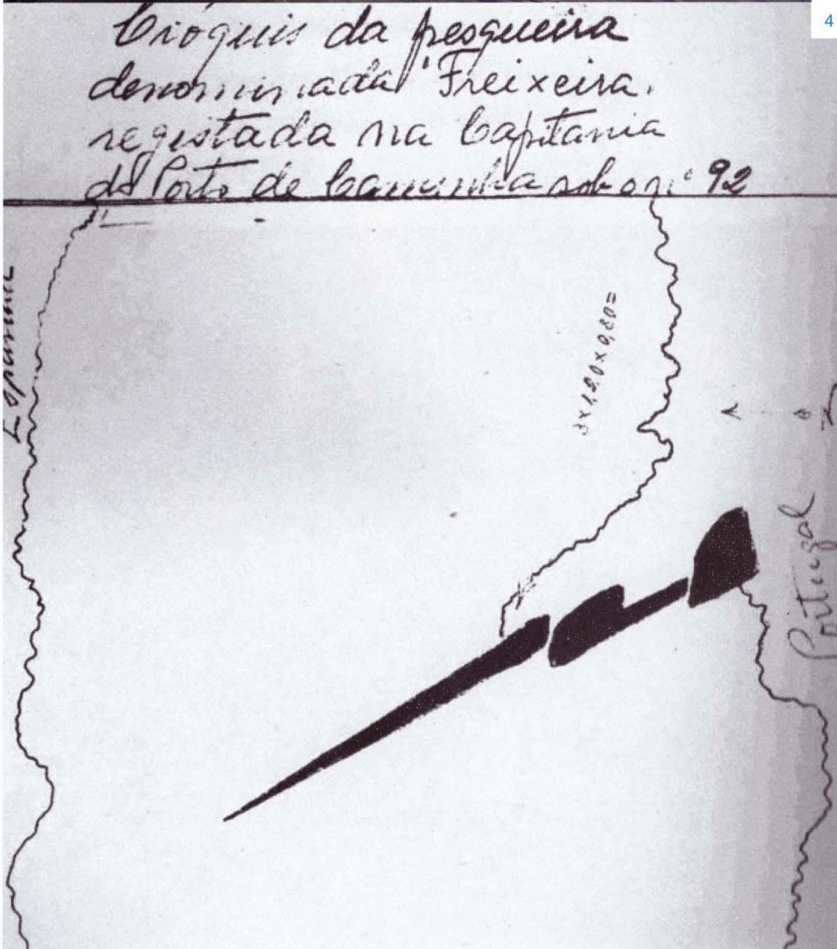 4
Cróquis da pesqueira
denominada "Freixeira"
registada na Capitania
do Porto de Caminha sob o nº 92
3x1,20x0,80=
Portugal